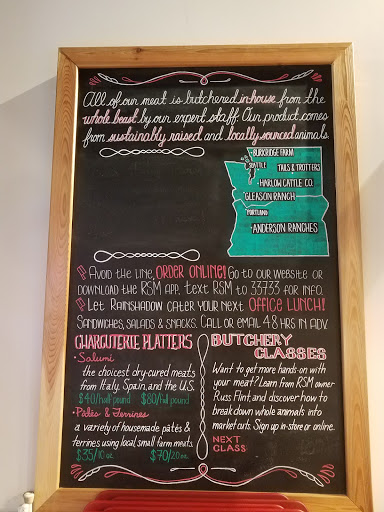 All of our meat is butchered in-house from the
whole beast by our expert staff. Our product comes
from sustainably raised and locally sourced animals.
BURRIDGE FARM
SEATTLE
TAILS & TROTTERS
HARLOW CATTLE CO.
GLEASON RANCH
PORTLAND
ANDERSON RANCHES
AVOID THE LINE, ORDER ONLINE! GO TO OUR WEBSITE OR
DOWNLOAD THE RSM APP. TEXT RSM TO 33733 FOR INFO.
LET RAINSHADOW CATER YOUR NEXT OFFICE LUNCH!
SANDWICHES, SALADS & SNACKS. CALL OR EMAIL 48 HRS IN ADV.
CHARCUTERIE PLATTERS
• Salumi
the choicest dry-cured meats
from Italy, Spain, and the U.S.
$40/half pound $80/full pound
• Pâtés & Terrines
a variety of housemade pâtés &
terrines using local small farm meats.
$35/10 oz. $70/20 oz.
BUTCHERY
CLASSES
Want to get more hands-on with
your meat? Learn from RSM owner
Russ Flint, and discover how to
break down whole animals into
market cuts. Sign up in-store or online.
NEXT
CLASS: